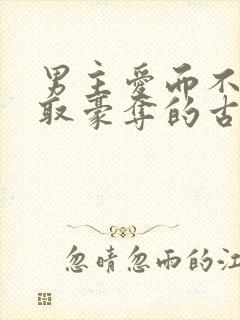 男主爱而不
取豪夺的古
忽晴忽雨的江